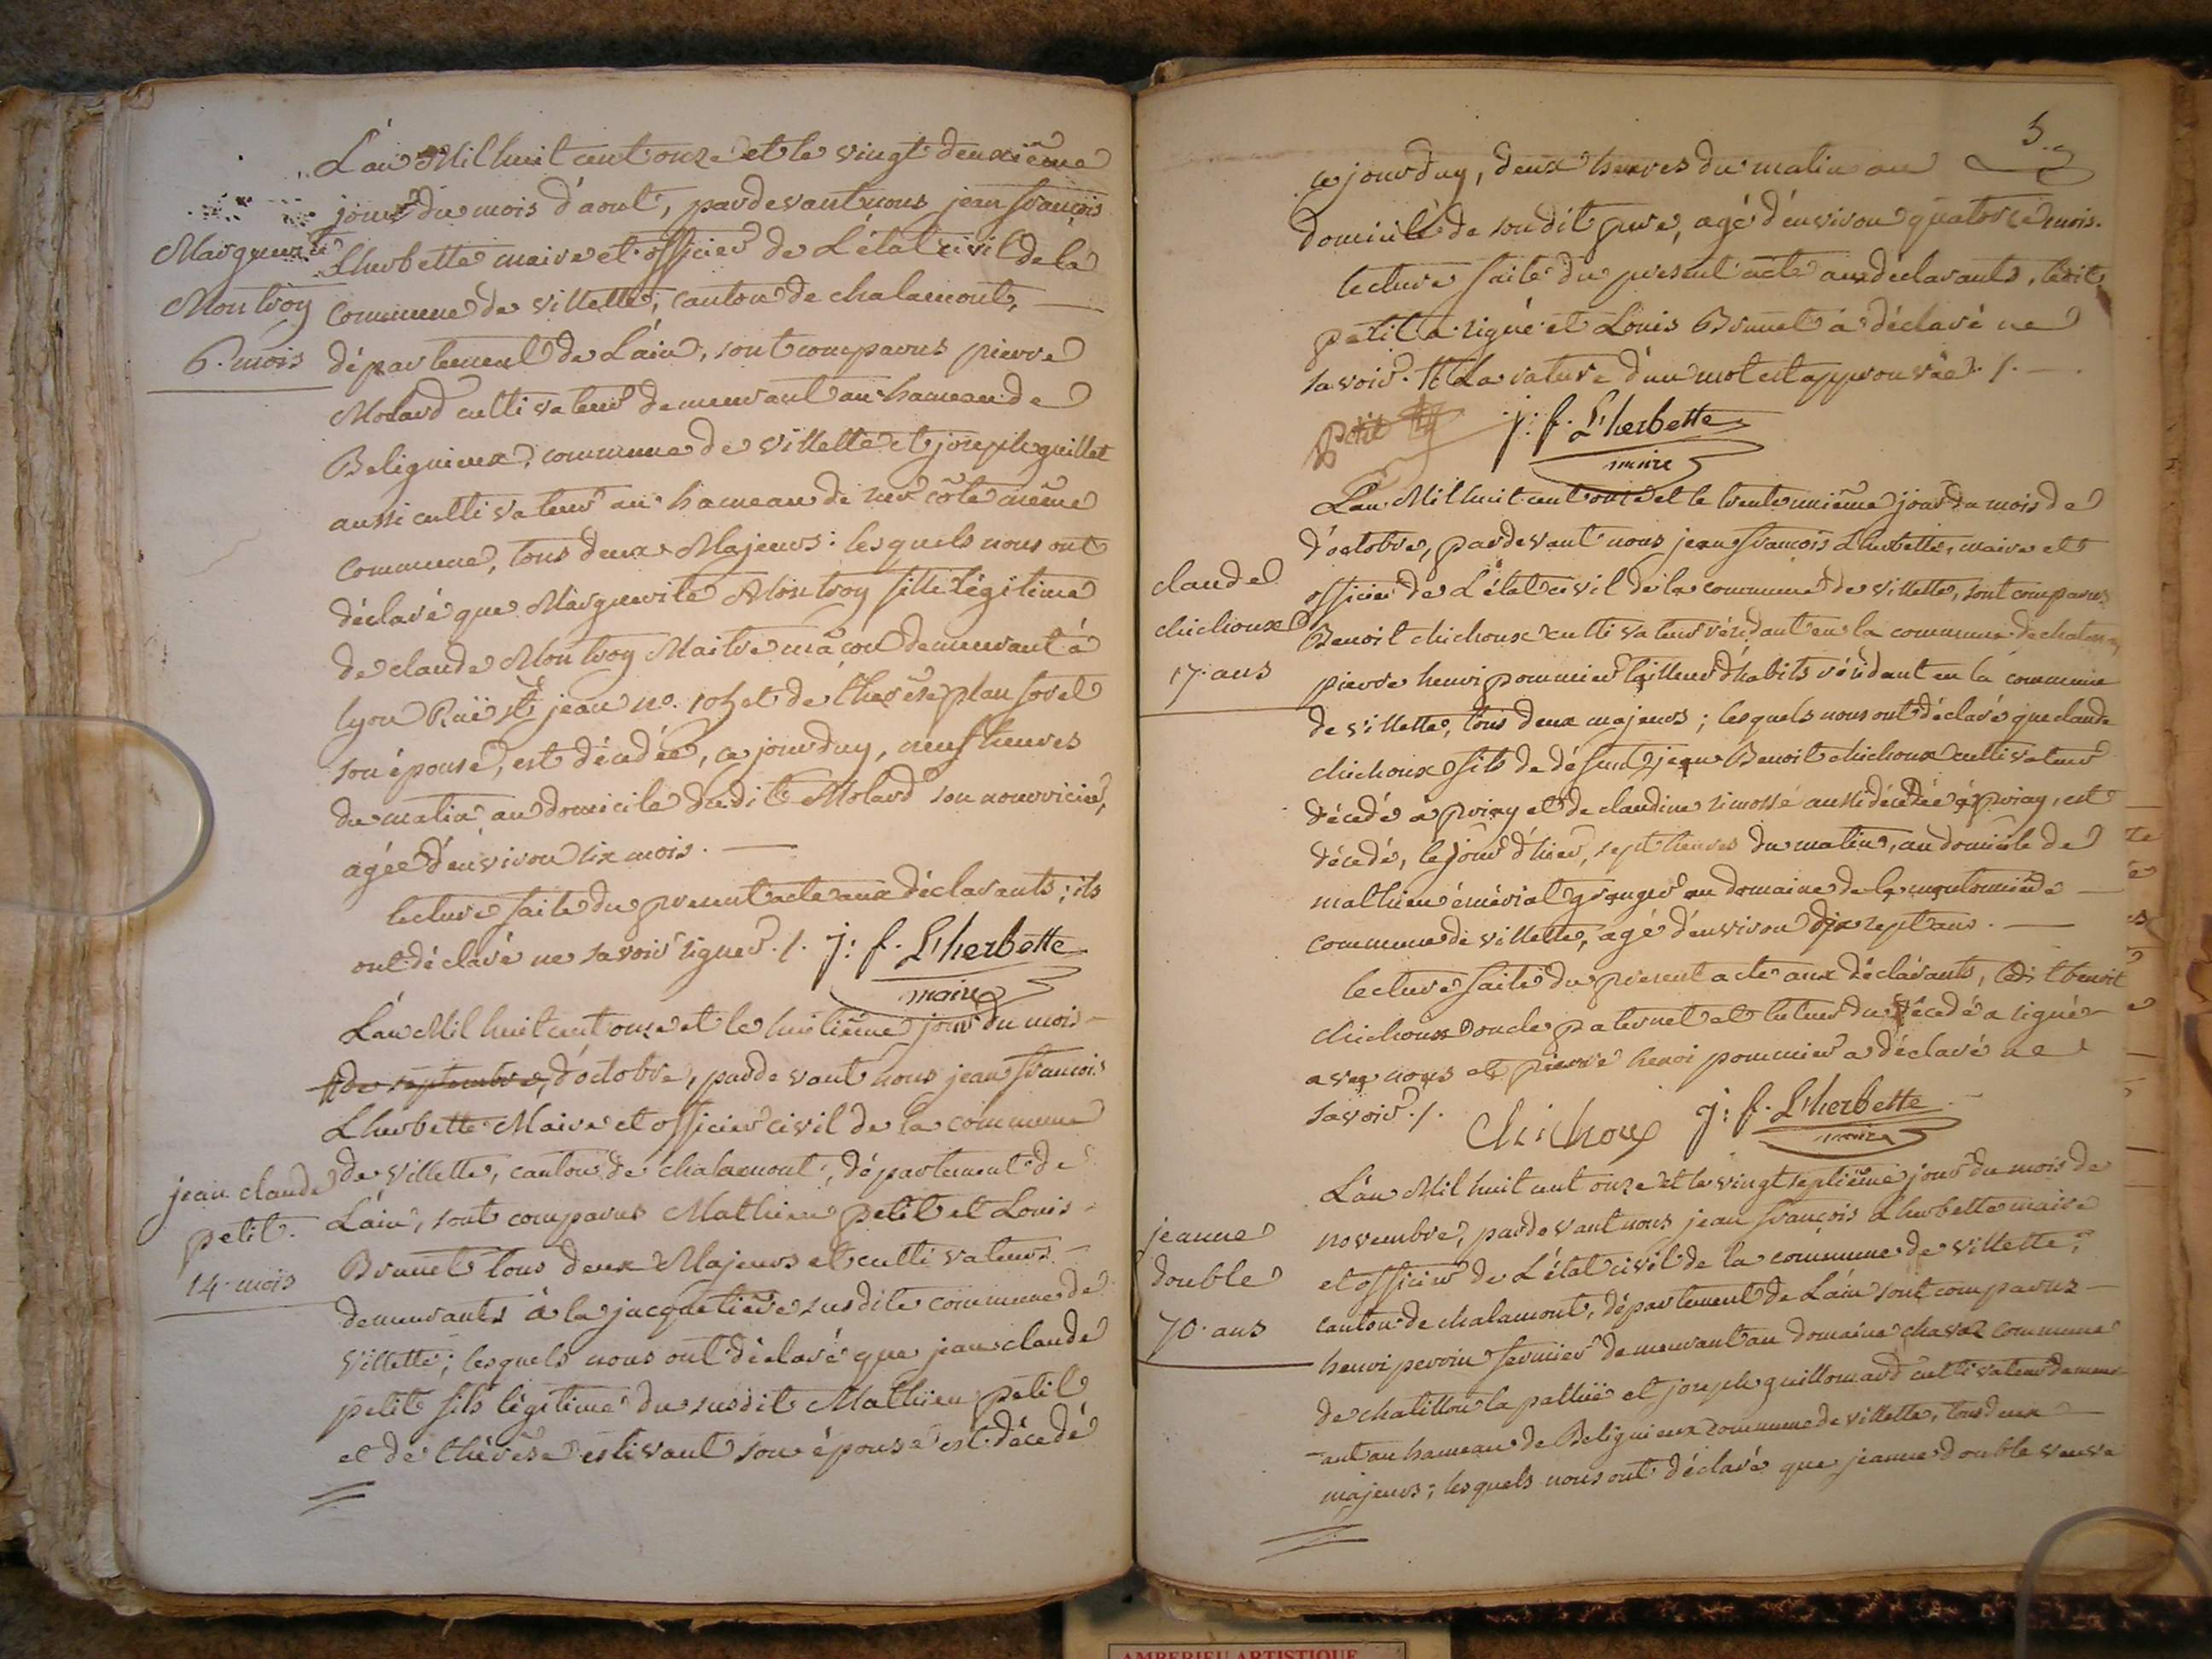 L'an Mil huit cent onze et le vingt deuxième
jour du mois d'aout, pardevant nous jean françois
Marguerite
Lherbette maire et officier de L'état civil de la
Montroy
commune de villette, canton de chalamont,
6. mois
département de L'ain, sont comparus pierre
Molard cultivateur demeurant au hameau de
Belignieux, commune de villette et joseph guillet
aussi cultivateur au hameau de sur côte même
commune, tous deux Majeurs: lesquels nous ont
déclaré que Marguerite Montroy fille légitime
de claude Montroy Maitre maçon demeurant à
lyon Rüe st jean no. et de therèse planforet
son épouse, est décedée, ce jourduy, neuf heures
du matin au domicile dudit Molard son nourricier,
agée d'environ six mois.
lecture faite du present acte aux déclarants; ils
ont déclaré ne savoir signer ./. j: f. L'herbette
maire
L'an Mil huit cent onze et le huitième jour du mois
de septembre, d'octobre, pardevant nous jean françois
Lherbette Maire et officier civil de la commune
jean claude
de villette, canton de chalamont, département de
petit.
L'ain, sont comparus Mathieu petit et Louis
Brunet tous deux Majeurs et cultivateurs
14. mois
demeurants à la jacquetière susdite commune de
villette; lesquels nous ont déclaré que jean claude
petit fils légitime du susdit Mathieu petit
et de thérèse estivant son épouse est décedé
5.
ce jourduy, deux heures du matin au
domicile de son dit pere, agé d'environ quatorze mois.
lecture faite du present acte aux déclarants, ledit
petit a signé et Louis Brunet à déclaré ne
savoir. La rature d'un mot est approuvée ./.
petit j: f. L'herbette
maire
L'an Mil huit cent onze et le trente unième jour du mois de
d'octobre, pardevant nous jean françois Lherbette, maire et
claude
officier de L'état civil de la commune de villette, sont comparus
chichoux
Benoit chichoux cultivateur résidant en la commune de
17. ans
pierre henri pommier tailleur d'habits résidant en la commune
de villette, tous deux majeurs; lesquels nous ont déclaré que claude
chichoux fils de défunt jean Benoit chichoux cultivateur
décedé à priay et de claudine simossé aussi décedée à priay, est
décedé, le jour d'hier, sept heures du matin, au domicile de
mathieu émériat granger au domaine de la moutonnière
commune de villette, agé d'environ dix sept ans.
lecture faite du present acte aux déclarants, ledit benoit
chichoux oncle paternel et tuteur du décedé a signé
avec nous et pierre henri pommier a déclaré ne
savoir ./. Chichoux j: f. L'herbette
maire
L'an Mil huit cent onze et le vingt septième jour du mois de
jeanne
novembre, pardevant nous jean françois Lherbette maire
double
et officier de L'état civil de la commune de villette,
70. ans
canton de chalamont, département de L'ain sont comparus
henri perrin fermier demeurant au domaine commune
de chatillon la pallüe et joseph guillomard cultivateur demeur-
-ant au hameau de Belignieux commune de villette, tous deux
majeurs; lesquels nous ont déclaré que jeanne double veuve
AMBERIEU ARTISTIQUE